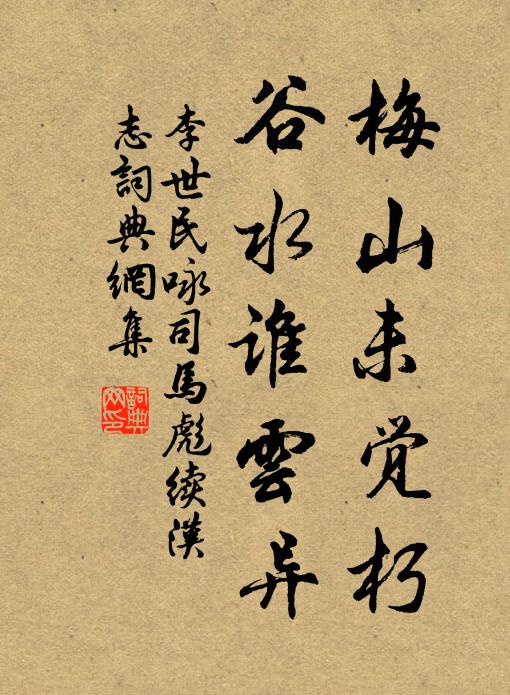 梅山未觉朽
谷水谁雲异
李世民咏司馬彪续漢
志詞典網集
詞典网印